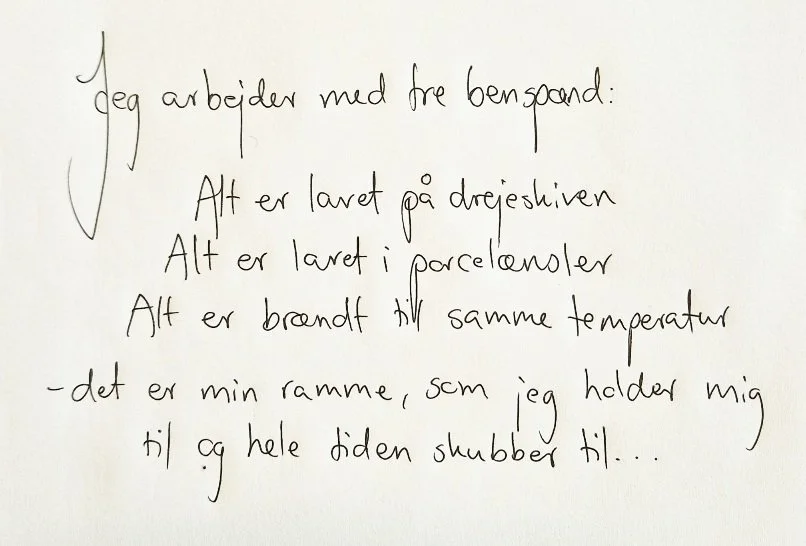 Jeg arbejder med tre benspænd:
Alt er lavet på drejeskiven
Alt er lavet i porcelænsler
Alt er brændt til samme temperatur
- det er min ramme, som jeg holder mig
til og hele tiden skubber til...